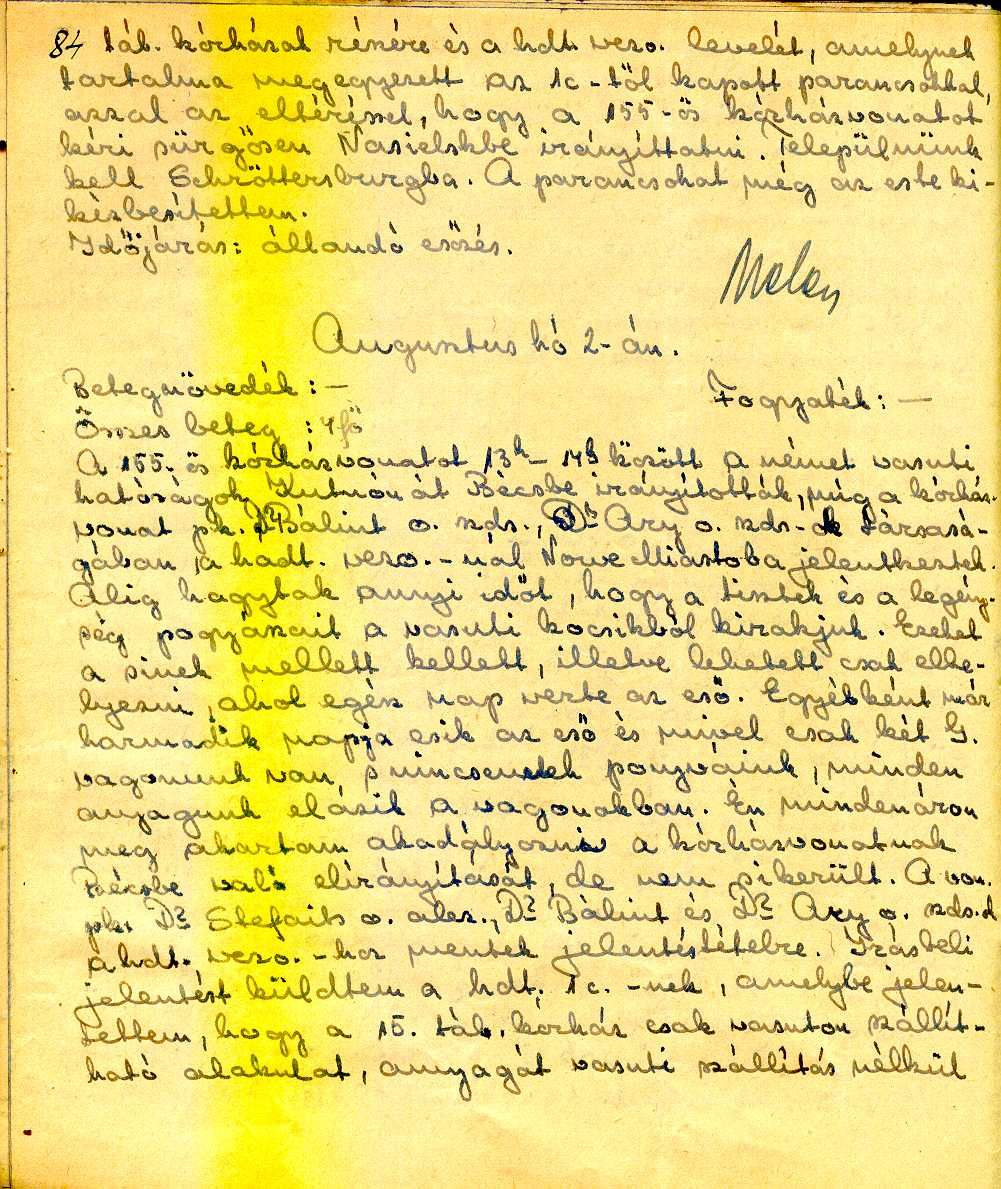 84 táb. kórházat részére és a hdt. vezo. levelét, amelynek
tartalma megegyezett az 1c-től kapott parancsokkal,
azzal az eltéréssel, hogy a 155-ös kórházvonatot
kéri sürgősen Nasielskbe irányíttatni. Települnünk
kell Schröttersburgba. A parancsokat még az este ki-
kézbesítettem.
Időjárás: állandó esőzés.
Augusztus hó 2-án.
Betegnövedék: —
Fogyaték: —
Összes beteg: 4 fő
A 155-ös kórházvonatot 13h-14h között a német vasuti
hatóságok Kutnón át Bécsbe irányították, míg a kórház-
vonat pk. Dr Bálint o. szds., Dr Ary o. szds-ok társasá-
gában a hadt. vezo.-nál Nowe Miastoba jelentkeztek.
Alig hagytak annyi időt, hogy a tisztek és a legény-
ség pogyászait a vasuti kocsikból kirakjuk. Ezeket
a sinek mellett kellett, illetve lehetett csak elhe-
lyezni, ahol egész nap verte az eső. Egyébként már
harmadik napja esik az eső és mivel csak két G.
vagonunk van, s nincsenek ponyváink, minden
anyagunk elázik a vagonokban. Én mindenáron
meg akartam akadályozni a kórházvonatnak
Bécsbe való elirányítását, de nem sikerült. A von.
pk. Dr Stefaits o. alez., Dr Bálint és Dr Ary o. szds.ok
a hdt. vezo.-hoz mentek jelentéstételre. Írásbeli
jelentést küldtem a hdt. 1c.-nek, amelybe jelen-
tettem, hogy a 15. táb. kórház csak vasuton szállít-
ható alakulat, anyagát vasuti szállítás nélkül